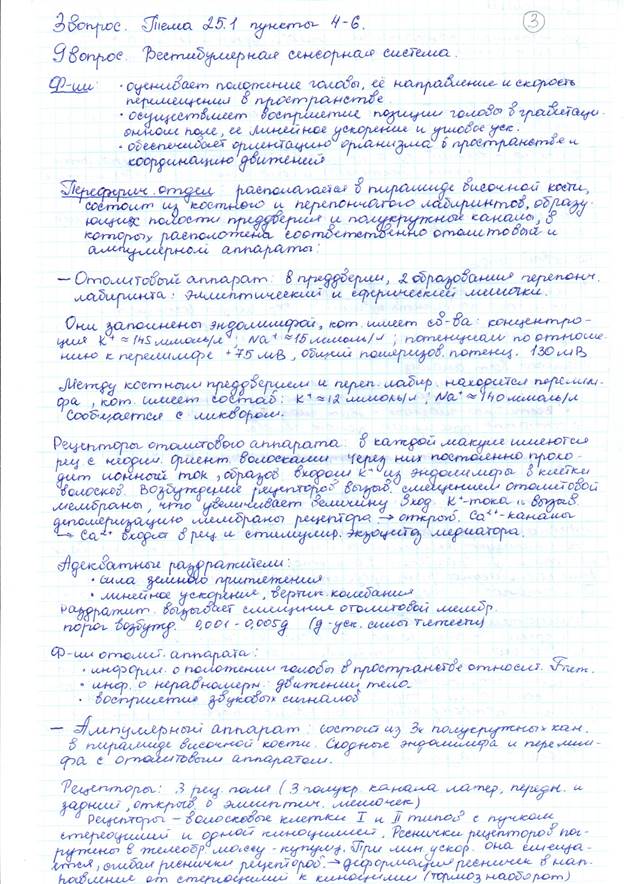 3 вопрос. Тема 25.1 пункты 4-6.
3
9 вопрос. Вестибулярная сенсорная система.
Ф-ии: • оценивает положение головы, её направление и скорость
перемещения в пространстве
• осуществляет восприятие позиции головы в гравитаци-
онном поле, ее линейное ускорение и угловое уск.
• обеспечивает ориентацию организма в пространстве и
координацию движений
Периферич. отдел располагается в пирамиде височной кости,
состоит из костного и перепончатого лабиринтов, образу-
ющих полости преддверия и полукружные каналы, в
которых расположена соответственно отолитовый и
ампулярный аппараты:
— Отолитовый аппарат: в преддверии, 2 образования перепонч.
лабиринта: эллиптический и сферический мешочки.
Они заполнены эндолимфой, кот. имеет св-ва: концентра-
ция K⁺ ≈ 145 ммоль/л; Na⁺ ≈ 15 ммоль/л; потенциал по отноше-
нию к перелимфе +75 мВ, общий поляризов. потенц. 130 мВ
Между костным преддверием и переп. лабир. находится перелим-
фа, кот. имеет состав: K⁺ ≈ 12 ммоль/л; Na⁺ ≈ 140 ммоль/л
Сообщается с ликвором.
Рецепторы отолитового аппарата: в каждой макуле имеются
рец с неодин. ориент. волосками. Через них постоянно прохо-
дит ионный ток, образов. входом K⁺ из эндолимфы в клетки
волосков. Возбуждение рецепторов вызыв. смещением отолитовой
мембраны, что увеличивает величину вход. K⁺-тока и вызыв.
деполяризацию мембраны рецептора → открыв. Ca²⁺-каналы
→ Ca²⁺ входит в рец и стимулир. экзоцитоз медиатора.
Адекватные раздражители:
• сила земного притяжения
• линейное ускорение, вертик. колебания
раздражит. вызывает смещение отолитовой мембр.
порог возбужд. 0,001 - 0,005g (g-уск. силы тяжести)
Ф-ии отолит. аппарата:
• информ. о положении головы в пространстве относит. Fтяж.
• инф. о неравномерн. движении тела
• восприятие звуковых сигналов
— Ампулярный аппарат: состоит из 3х полукружных кан.
в пирамиде височной кости. Сходные эндолимфа и перелим-
фа с отолитовым аппаратом.
Рецепторы: 3 рец. поля (3 полукр. канала латер., передн. и
задний, открыв. в эллиптич. мешочек)
Рецепторы – волосковые клетки I и II типов с пучком
стереоцилий и одной киноцилией. Реснички рецепторов по-
гружены в желеобр. массу - купулу. При лин. ускор. она смеща-
ется, сгибая реснички рецепторов → деформация ресничек в нап-
равлении от стереоцилий к киноцилии (тормоз наоборот)